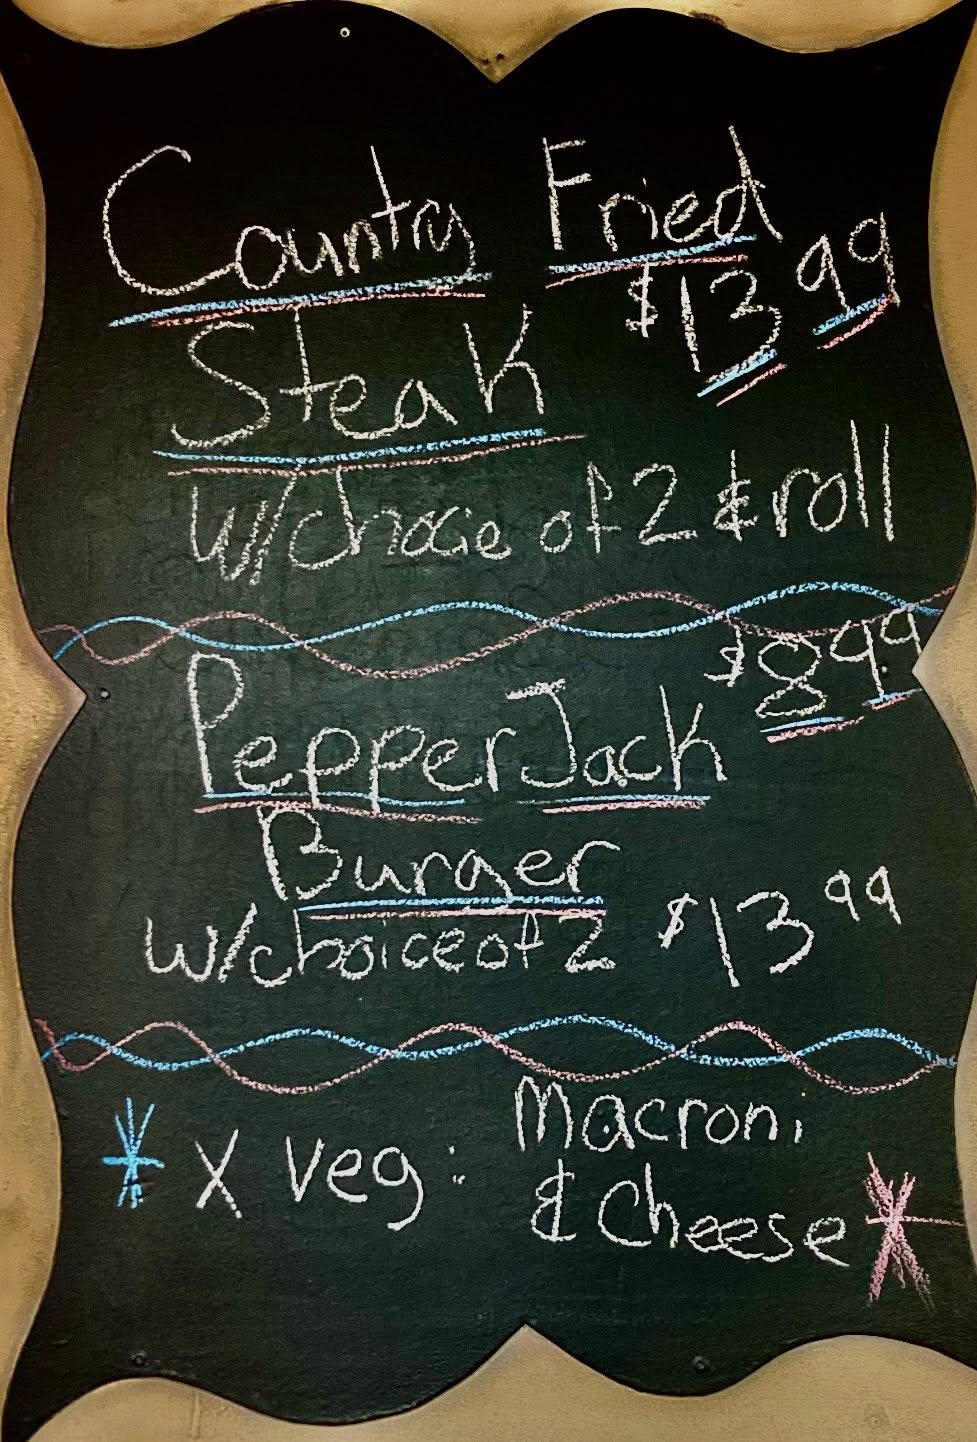 Country Fried
$13.99
Steak
w/chocie of 2 & roll
$8.99
Pepper Jack
Burger
w/choice of 2 $13.99
X Veg: Macroni
& Cheese